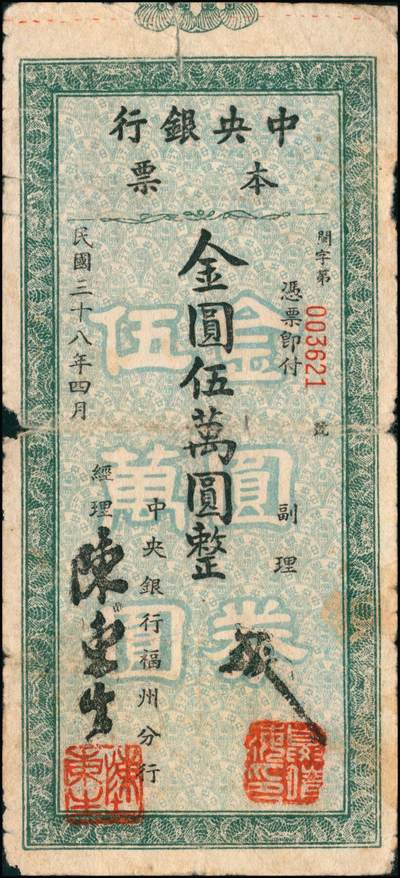 中央銀行
本票
閩字第003621號
憑票即付
金圓伍萬圓整
金圓券
伍萬圓
副理
中央銀行福州分行
經理
陳東生
民國三十八年四月